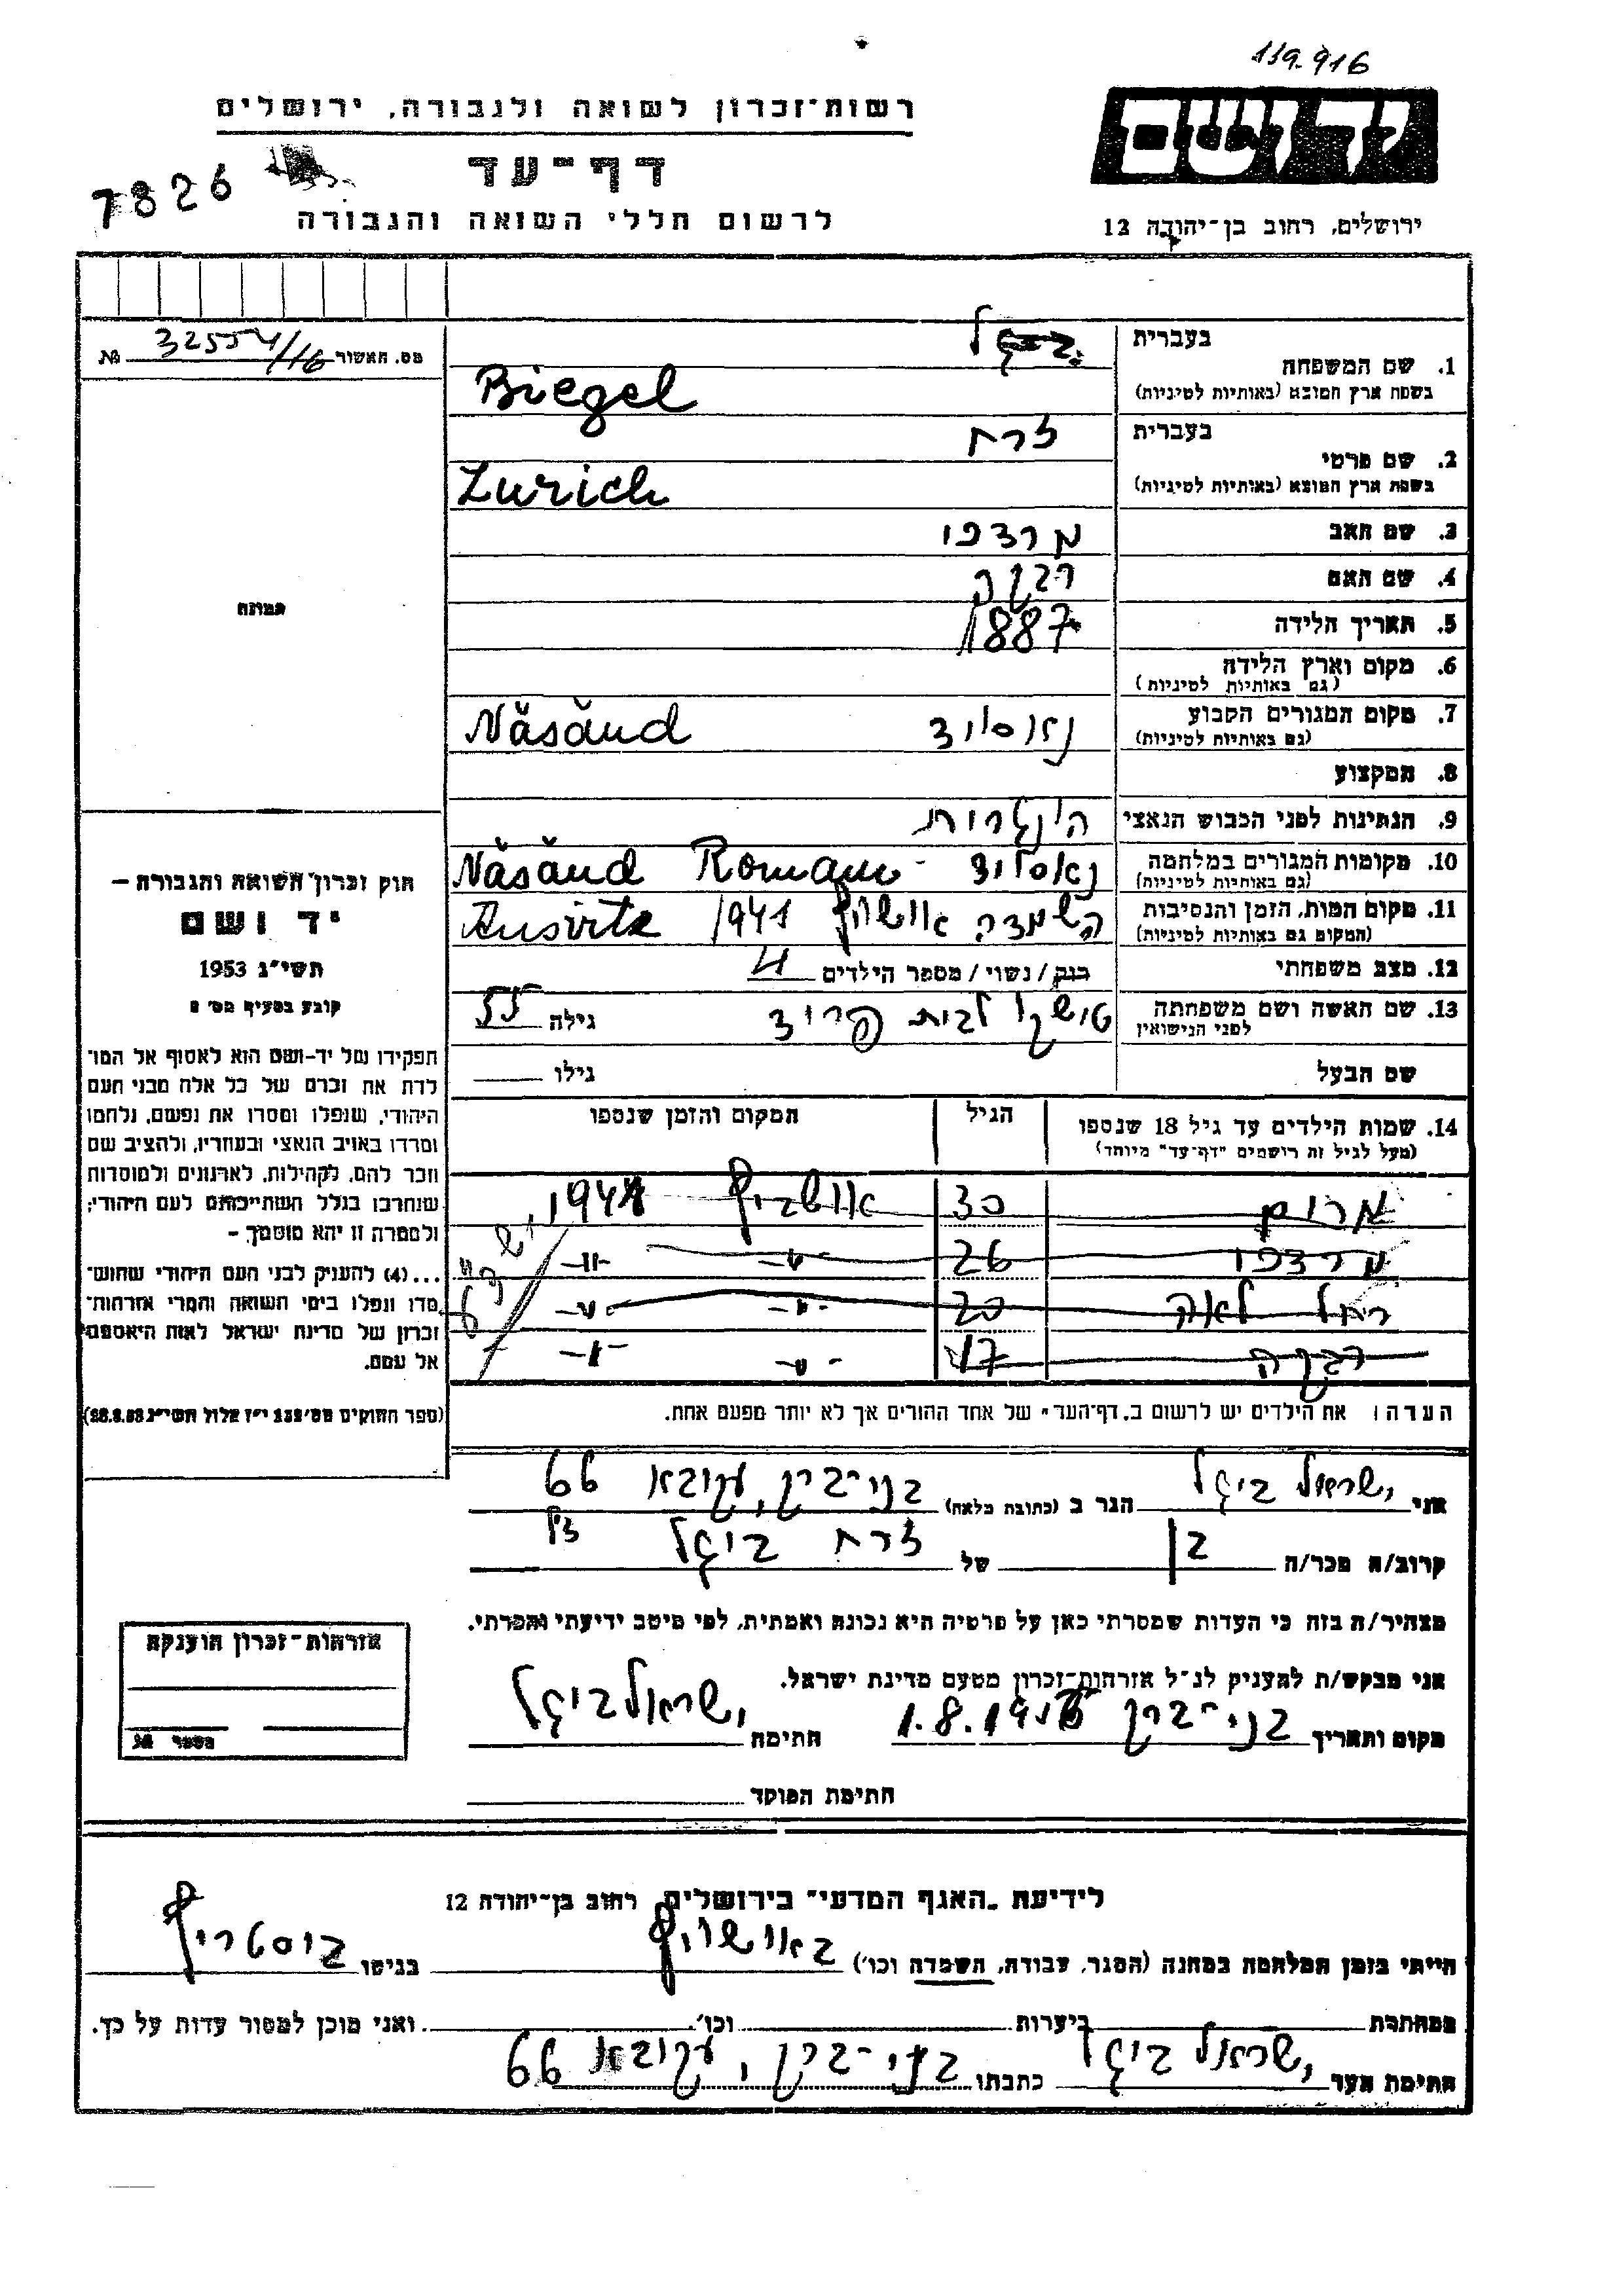 119.916
יד ושם
רשות־זכרון לשואה ולגבורה, ירושלים
דף־עד
7826
לרשום חללי השואה והגבורה
ירושלים, רחוב בן־יהודה 12
בעברית
1. שם המשפחה
בשפת ארץ המוצא (באותיות לטיניות) Biegel
מס. האשור 32554/16 №
בעברית זרח
2. שם פרטי
בשפת ארץ המוצא (באותיות לטיניות) Zurich
3. שם האב מרדכי
4. שם האם רבקה
תמונה
5. תאריך הלידה 1887
6. מקום וארץ הלידה
(גם באותיות לטיניות)
7. מקום המגורים הקבוע Năsăud
(גם באותיות לטיניות)
8. המקצוע
9. הנתינות לפני הכבוש הנאצי הונגרית
10. מקומות המגורים במלחמה Năsăud
(גם באותיות לטיניות)
11. מקום המות, הזמן והנסיבות השמדה אושויץ Ausvitz
(המקום גם באותיות לטיניות)
12. מצב משפחתי רוק / נשוי / מספר הילדים 4
13. שם האשה ושם משפחתה לבית גילה 55
לפני הנישואין
שם הבעל גילו
14. שמות הילדים עד גיל 18 שנספו הגיל המקום והזמן שנספו
(מעל לגיל זה רושמים "דף־עד" מיוחד)
מרים 30 אושביץ
מרדכי 26 -"- -"-
רחל לאה 20 -"- -"-
רבקה 17 -"- -"-
חוק זכרון השואה והגבורה –
יד ושם
תשי״ג 1953
קובע בסעיף מס׳ 2
תפקידו של יד-ושם הוא לאסוף אל המו־
לדת את זכרם של כל אלה מבני העם
היהודי, שנפלו ומסרו את נפשם, נלחמו
ומרדו באויב הנאצי ובעוזריו, ולהציב שם
וזכר להם, לקהילות, לארגונים ולמוסדות
שנחרבו בגלל השתייכותם לעם היהודי;
ולמטרה זו יהא מוסמך –
...(4) להעניק לבני העם היהודי שהוש־
מדו ונפלו בימי השואה והמרי אזרחות־
זכרון של מדינת ישראל לאות היאספם
אל עמם.
(ספר החוקים מס׳ 132 י״ז אלול תשי״ג 28.8.53)
הערה: את הילדים יש לרשום ב„דף־העד" של אחד ההורים אך לא יותר מפעם אחת.
אני ישראל ביגל הגר ב (כתובת מלאה) בני־ברק, עקיבא 66
קרוב/ה מכר/ה בן של זרח ביגל ז״ל
מצהיר/ה בזה כי העדות שמסרתי כאן על פרטיה היא נכונה ואמתית, לפי מיטב ידיעתי והכרתי.
אני מבקש/ת להעניק לנ״ל אזרחות־זכרון מטעם מדינת ישראל.
מקום ותאריך בני־ברק חתימה ישראל ביגל
חתימת הפוקד
אזרחות־זכרון הוענקה
מספר №
לידיעת „האגף המדעי" בירושלים, רחוב בן־יהודה 12
הייתי בזמן המלחמה במחנה (הסגר, עבודה, השמדה וכו׳) באושויץ בגיטו ביסטריץ
במחתרת ביערות וכו׳ ואני מוכן למסור עדות על כך.
חתימת העד ישראל ביגל כתבתו בני־ברק, עקיבא 66